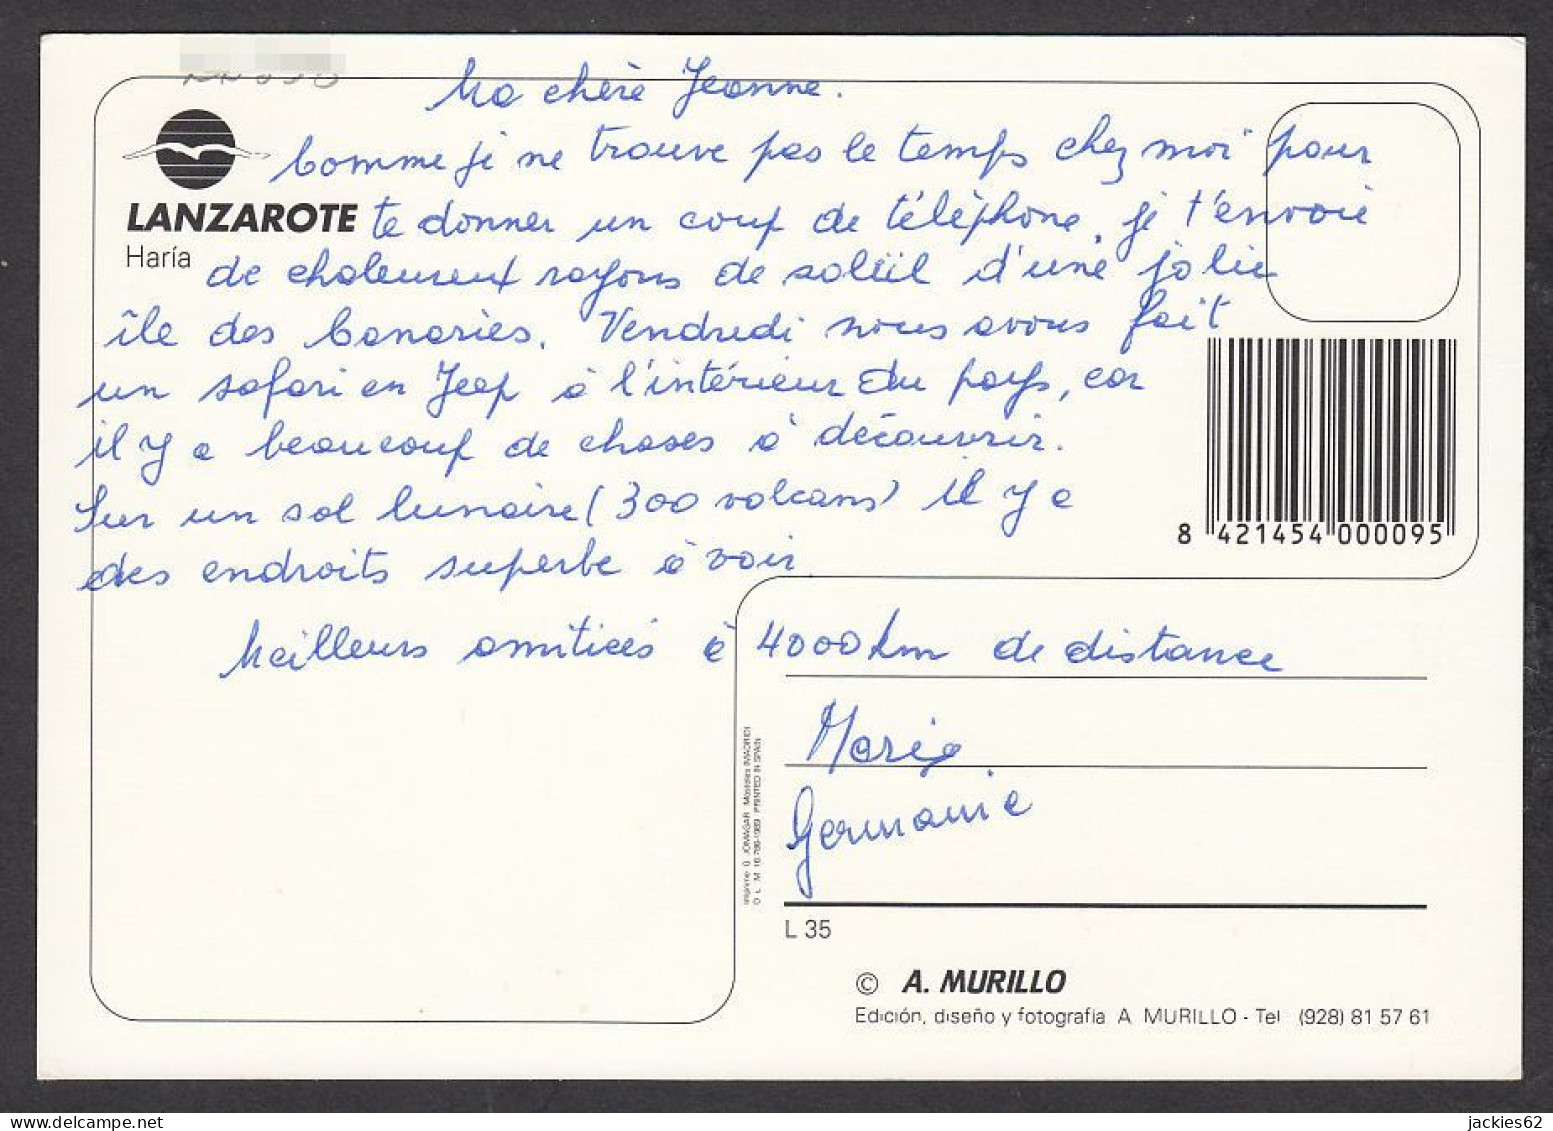 Ma chère Jeanne.
Comme je ne trouve pas le temps chez moi pour
LANZAROTE te donner un coup de téléphone, je t'envoie
Haría de chaleureux rayons de soleil d'une jolie
île des Canaries. Vendredi nous avons fait
un safari en Jeep à l'intérieur du pays, car
il y a beaucoup de choses à découvrir.
Sur un sol lunaire (300 volcans) il y a
des endroits superbe à voir.
8 421454 000095
Meilleurs amitiés à 4000 km de distance
Marie
Germaine
Imprime G. JOMAGAR Mostoles (MADRID)
D L M 16.786-1989 PRINTED IN SPAIN
L 35
© A. MURILLO
Edición, diseño y fotografía A. MURILLO - Tel (928) 81 57 61
delcampe.net
jackies62